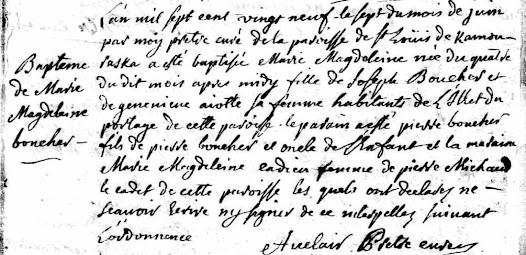 Bapteme
de Marie
Magdelaine
boucher
L'an mil sept cent vingt neuf le sept du mois de juin
par moy pretre curé de la paroisse de St Loüis de Kamou
raska a esté baptisée Marie Magdeleine née du quatre
du dit mois apres midy fille de Joseph Boucher et
de genevieve aiotte sa femme habitants de
portage de cette paroisse. le parain a esté pierre boucher
fils de pierre boucher et oncle de l'enfant et la maraine
Marie Magdeleine cadieu femme de pierre Michaud
le cadet de cette paroisse les quels ont declarés ne
scavoir ecrire ny signer de ce interpellés suivant
L'ordonnance
Auclair Pretre curé